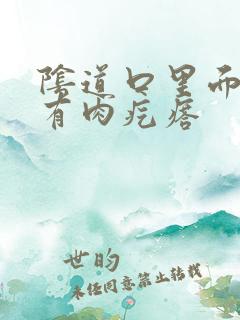 陰道口里面
有肉疙瘩
世的
未经同意禁止转载